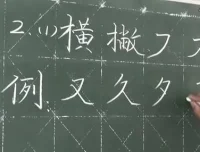 2.(1)横撇フ
例.又久夕